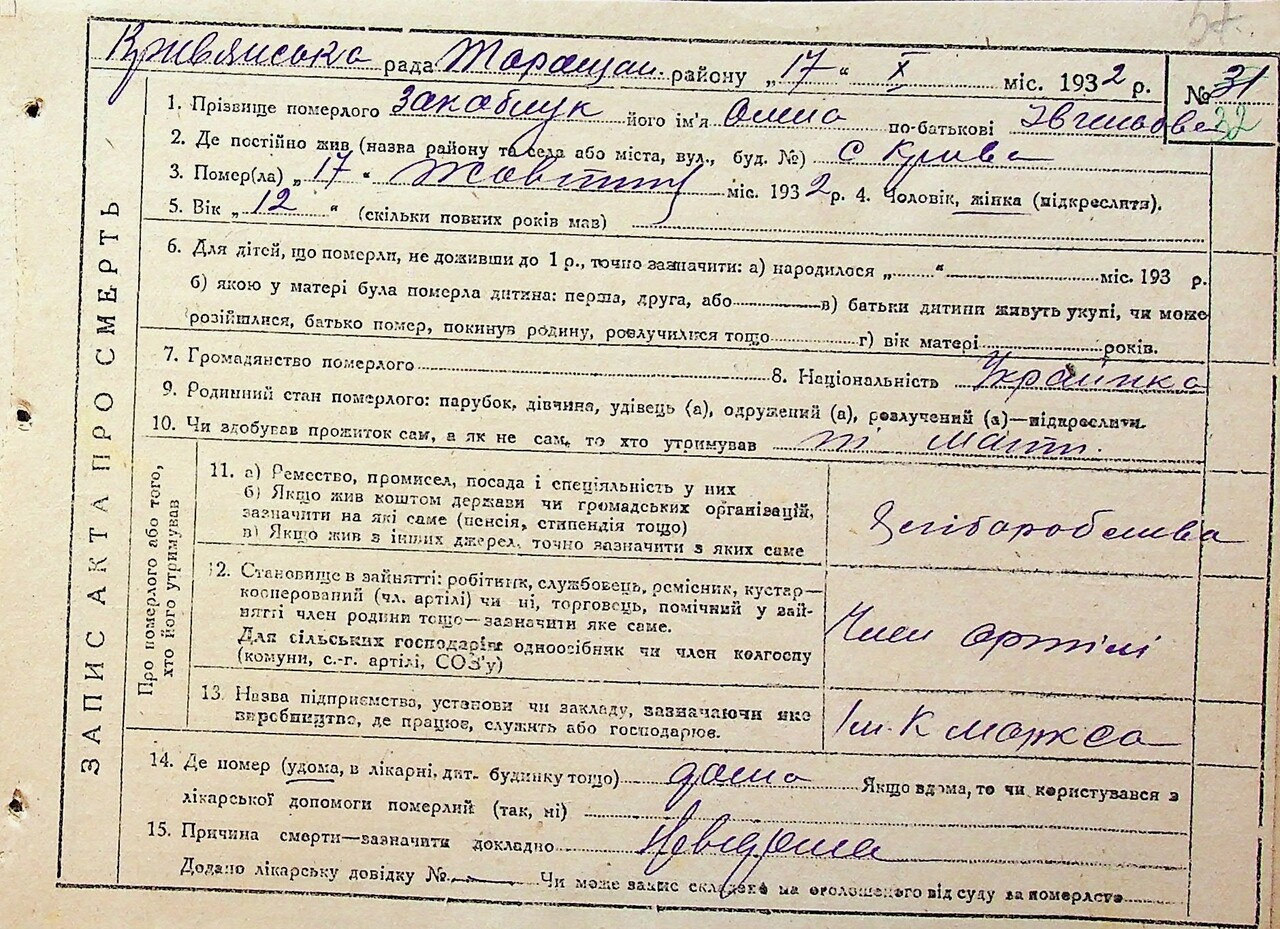 57.
Кривянська рада Таращан. району „17“ X міс. 1932 р. № 31
32
1. Прізвище померлого Закаблук його ім'я Олена по-батькові Івгеньова
2. Де постійно жив (назва району та села або міста, вул., буд. №) с Крива
3. Помер(ла) „17“ Жовтня міс. 1932 р. 4. Чоловік, жінка (підкреслити).
5. Вік „12“ (скільки повних років мав)
6. Для дітей, що померли, не доживши до 1 р., точно зазначити: а) народилося „ “ міс. 193 р.
б) якою у матері була померла дитина: перша, друга, або в) батьки дитини живуть укупі, чи може
розійшлися, батько помер, покинув родину, розлучилися тощо г) вік матері років.
7. Громадянство померлого 8. Національність Українка
9. Родинний стан померлого: парубок, дівчина, удівець (а), одружений (а), розлучений (а)—підкреслити.
10. Чи здобував прожиток сам, а як не сам, то хто утримував ні мати.
ЗАПИС АКТА ПРО СМЕРТЬ
Про померлого або того,
хто його утримував
11. а) Ремество, промисел, посада і спеціяльність у них
б) Якщо жив коштом держави чи громадських організацій,
зазначити на які саме (пенсія, стипендія тощо)
в) Якщо жив з інших джерел, точно зазначити з яких саме
Хліборобства
12. Становище в зайнятті: робітник, службовець, ремісник, кустар—
кооперований (чл. артілі) чи ні, торговець, помічний у зай-
нятті член родини тощо—зазначити яке саме.
Для сільських господарів одноосібник чи член колгоспу
(комуни, с.-г. артілі, СОЗ'у)
Член артілі
13. Назва підприємства, установи чи закладу, зазначаючи яке
виробництво, де працює, служить або господарює.
Ім. К Маркса
14. Де помер (удома, в лікарні, дит. будинку тощо) дома Якщо вдома, то чи користувався з
лікарської допомоги померлий (так, ні)
15. Причина смерти—зазначити докладно Невідома
Додано лікарську довідку № Чи може запис складено на оголошеного від суду за померлого